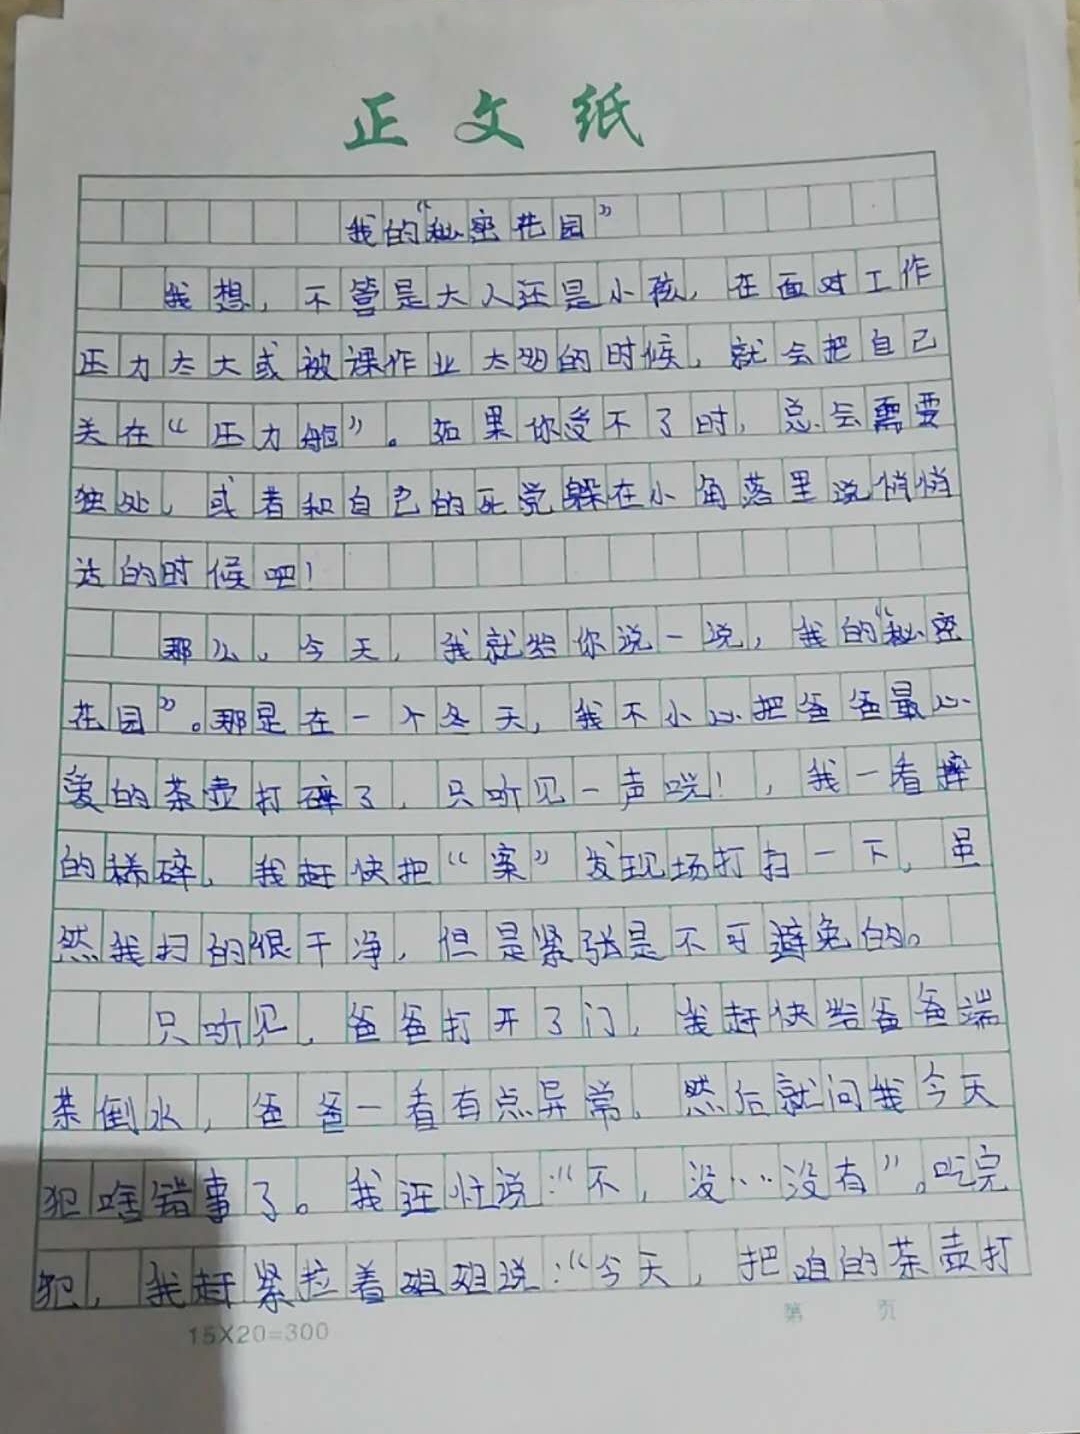 正文纸
我的“秘密花园”
我想，不管是大人还是小孩，在面对工作
压力太大或被课作业太多的时候，就会把自己
关在“压力舱”。如果你受不了时，总会需要
独处，或者和自己的死党躲在小角落里说悄悄
话的时候吧！
那么，今天，我就给你说一说，我的“秘密
花园”。那是在一个冬天，我不小心把爸爸最心
爱的茶壶打碎了，只听见一声咣！，我一看摔
的稀碎，我赶快把“案”发现场打扫一下，虽
然我扫的很干净，但是紧张是不可避免的。
只听见，爸爸打开了门，我赶快给爸爸端
茶倒水，爸爸一看有点异常，然后就问我今天
犯啥错事了。我连忙说：“不，没…没有”。吃完
犯，我赶紧拉着姐姐说：“今天，把咱的茶壶打
15X20=300
第 页